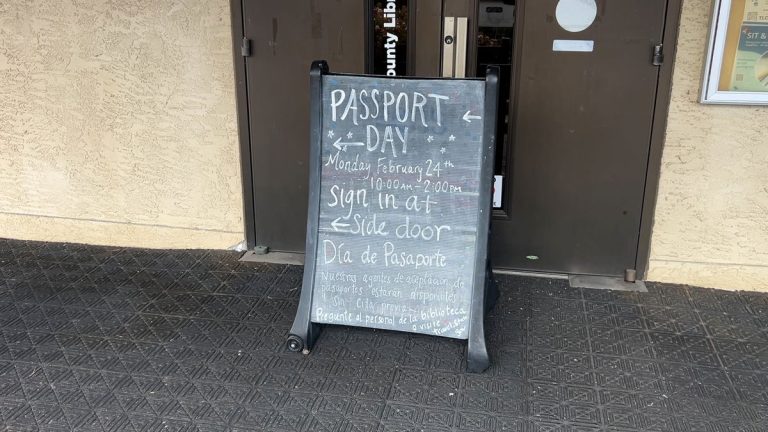 ounty Libr
SIT &
PASSPORT ←
← DAY
Monday February 24th
10:00AM - 2:00PM
sign in at
← Side door
Día de Pasaporte
Nuestros agentes de aceptación de
pasaportes estarán disponibles
sin cita previa
Pregunte al personal de la biblioteca
o visite